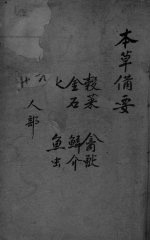 本草備要
穀菜 禽獸
金石 鱗介
魚虫
人部